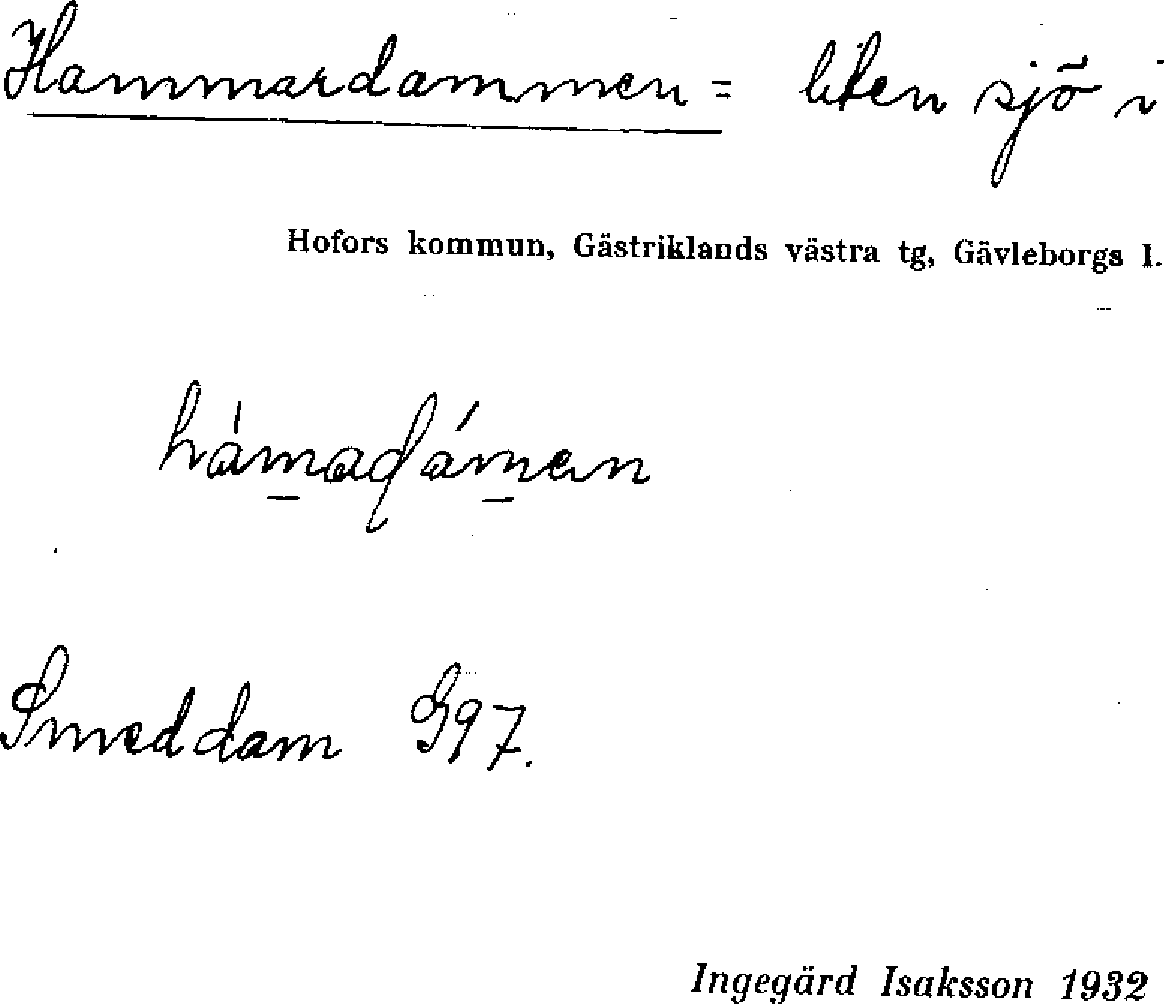 Hammardammen = liten sjö i
Hofors kommun, Gästriklands västra tg, Gävleborgs l.
hàmadámen
Smeddam G97.
Ingegärd Isaksson 1932